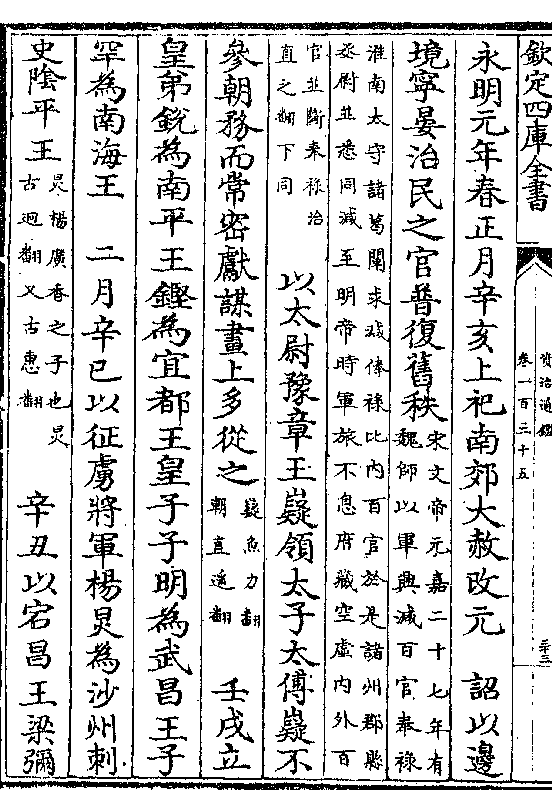 欽定四庫全書
資治通鑑
卷一百三十五
永明元年春正月辛亥上祀南郊大赦改元　詔以邊
境寧晏治民之官普復舊秩
宋文帝元嘉二十七年有
魏師以軍興減百官奉祿
淮南太守諸葛闡求減俸祿比內百官於是諸州郡縣
丞尉並悉同減至明帝時軍旅不息府藏空虛內外百
官並斷奉祿治
直之翻下同
以太尉豫章王嶷領太子太傅嶷不
參朝務而常密獻謀畫上多從之
嶷魚力翻
朝直遙翻
壬戌立
皇弟銳為南平王鏗為宜都王皇子子明為武昌王子
罕為南海王　二月辛巳以征虜將軍楊炅為沙州刺
史陰平王
炅楊廣香之子也炅
古迥翻又古惠翻
辛丑以宕昌王梁彌